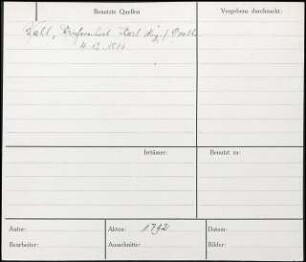 Benutzte Quellen
Vergebens durchsucht:
Wahl, Briefwechsel Karl Aug. / Goethe
4.12.1816
Irrtümer:
Benutzt zu:
Autor:
Akten: 1792
Datum:
Bearbeiter:
Ausschnitte:
Bilder: